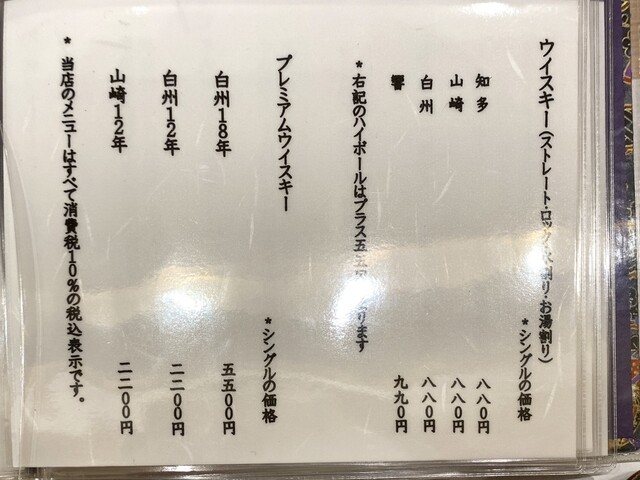 ウイスキー（ストレート・ロック・水割り・お湯割り）
＊シングルの価格
知多 八八〇円
山崎 八八〇円
白州 八八〇円
響 九九〇円
＊右記のハイボールはプラス五五円 なります
プレミアムウイスキー
＊シングルの価格
白州18年 五五00円
白州12年 二二00円
山崎12年 二二00円
＊当店のメニューはすべて消費税10％の税込表示です。